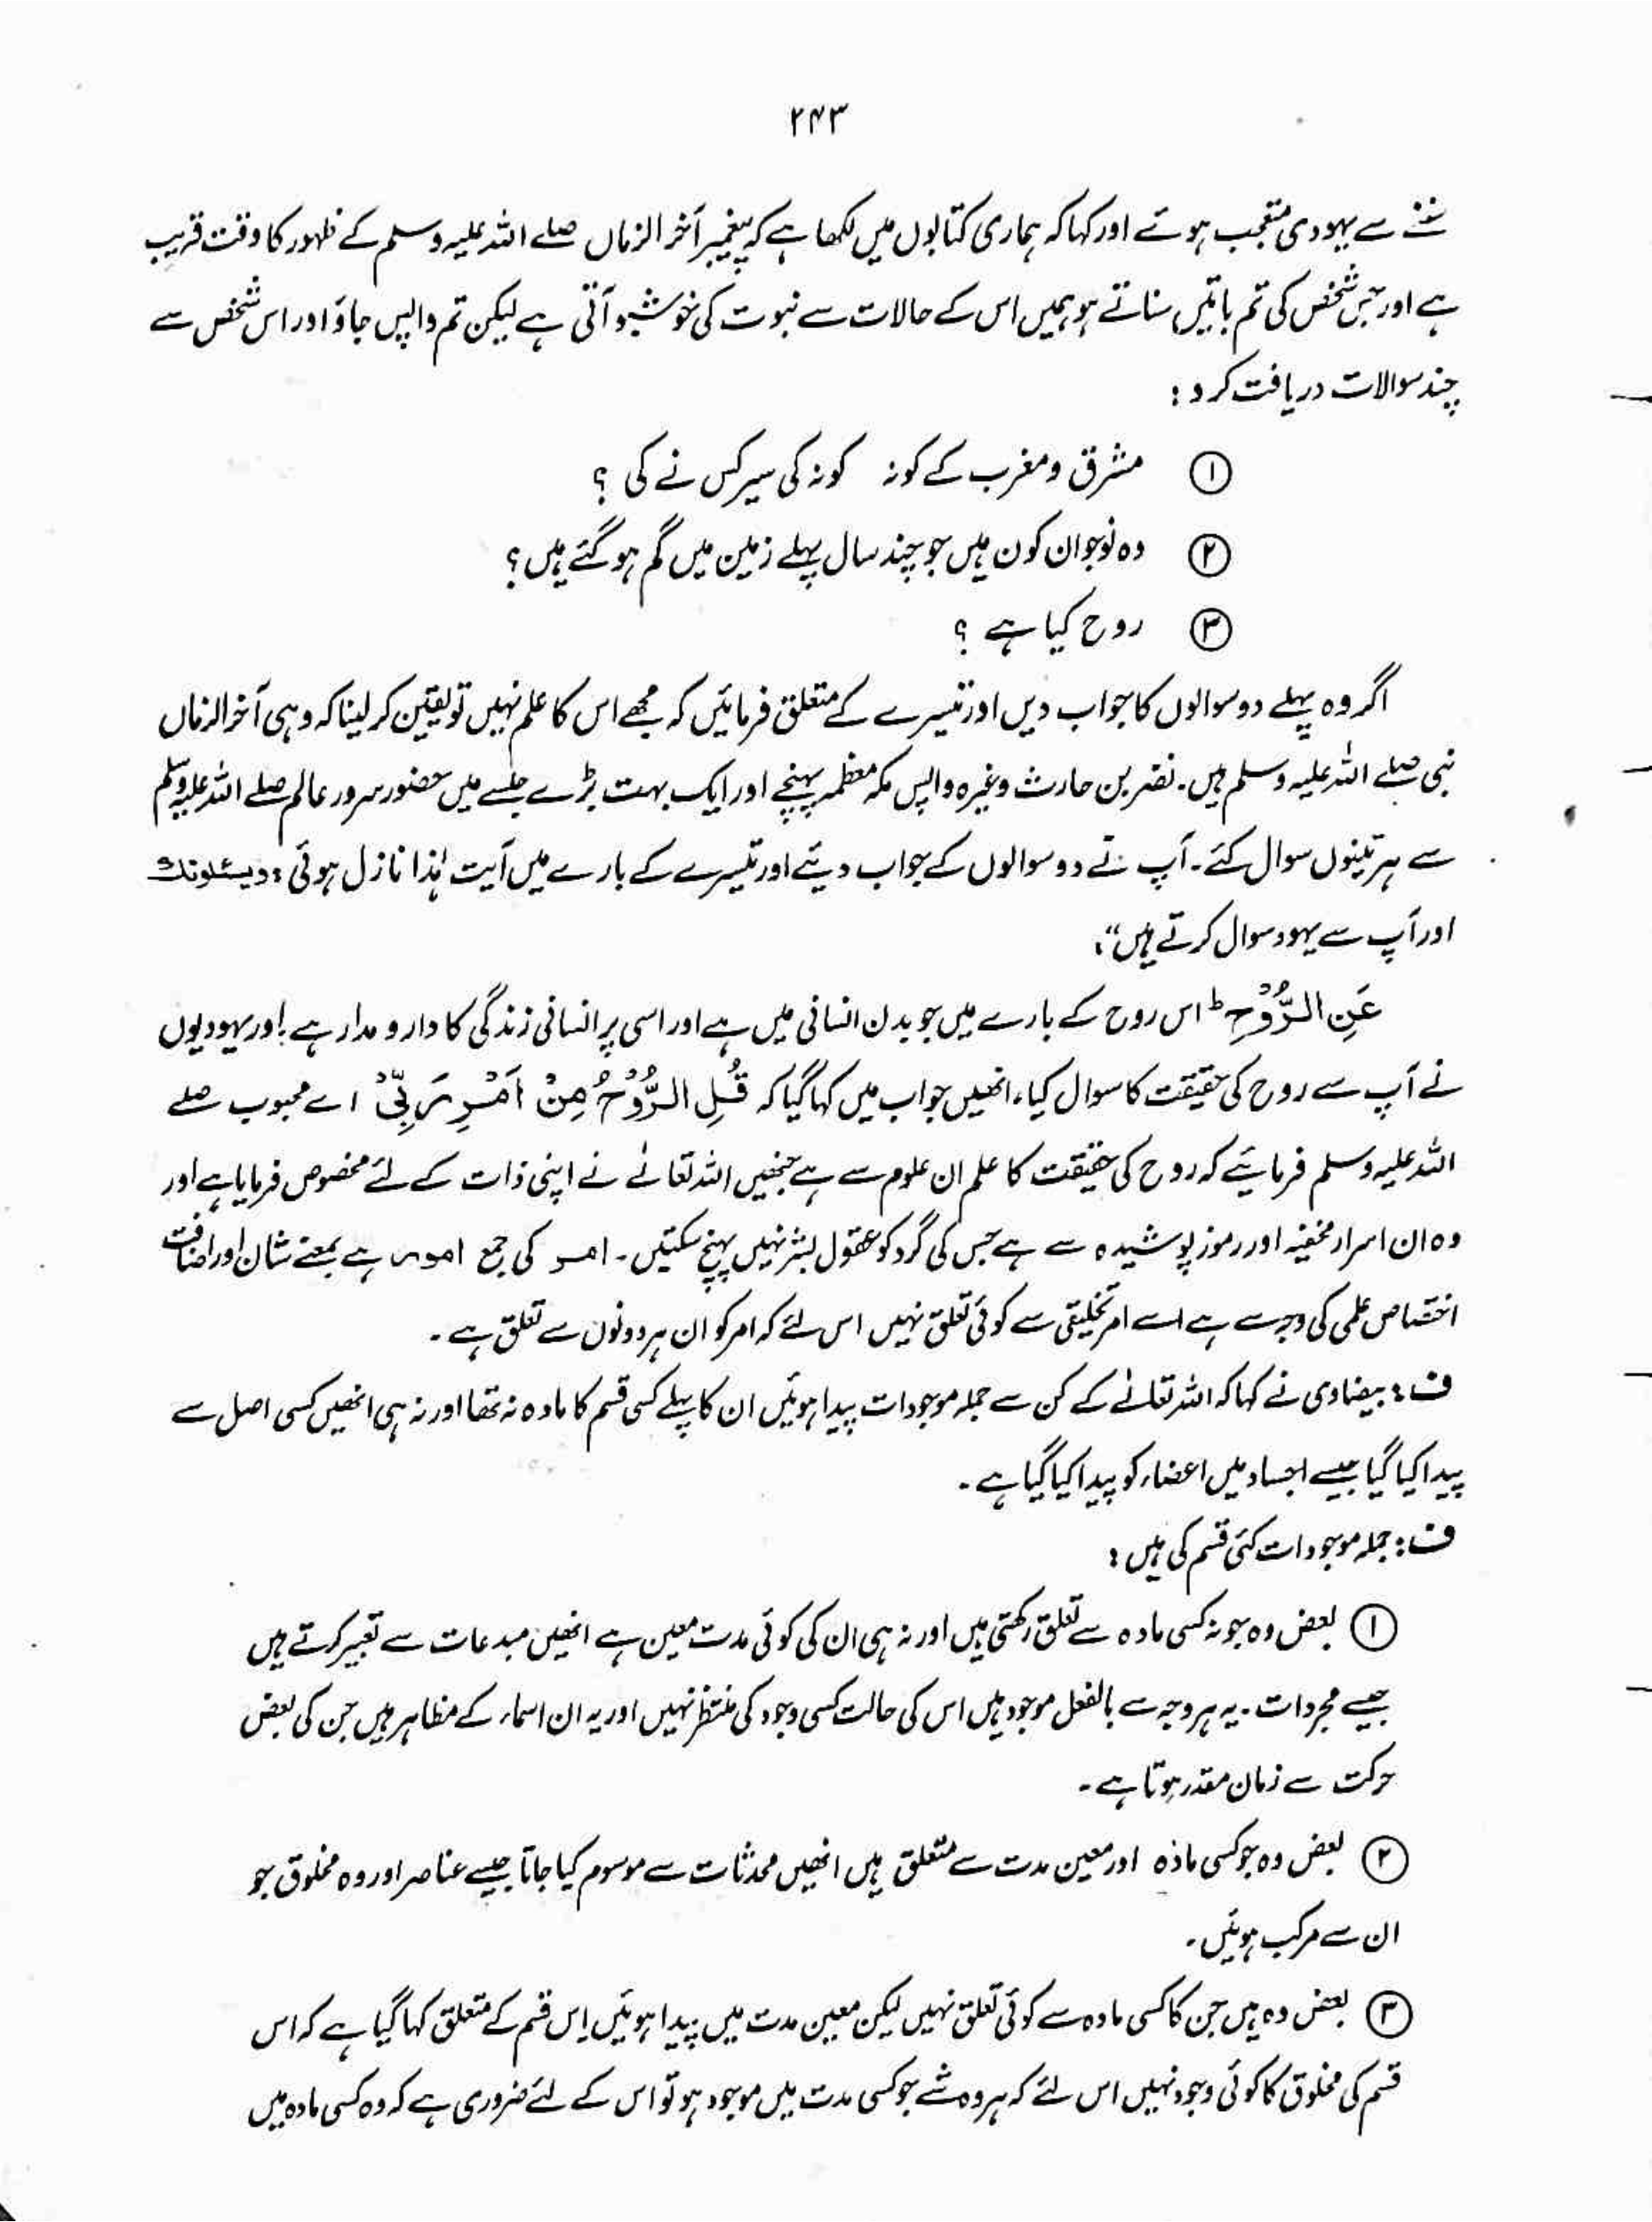 ۲۴۳
سننے سے یہودی متعجب ہوئے اور کہا کہ ہماری کتابوں میں لکھا ہے کہ پیغمبر آخر الزماں صلے اللہ علیہ وسلم کے ظہور کا وقت قریب
ہے اور جس شخص کی تم باتیں سناتے ہو ہمیں اس کے حالات سے نبوت کی خوشبو آتی ہے لیکن تم واپس جاؤ اور اس شخص سے
چند سوالات دریافت کرو :
① مشرق و مغرب کے کونہ کونہ کی سیر کس نے کی ؟
② وہ نوجوان کون ہیں جو چند سال پہلے زمین میں گم ہو گئے ہیں ؟
③ روح کیا ہے ؟
اگر وہ پہلے دو سوالوں کا جواب دیں اور تیسرے کے متعلق فرمائیں کہ مجھے اس کا علم نہیں تو یقین کر لینا کہ وہی آخر الزماں
نبی صلے اللہ علیہ وسلم ہیں۔ نضر بن حارث وغیرہ واپس مکہ معظمہ پہنچے اور ایک بہت بڑے جلسے میں حضور سرور عالم صلے اللہ علیہ وسلم
سے ہر تینوں سوال کئے۔ آپ نے دو سوالوں کے جواب دیئے اور تیسرے کے بارے میں آیت ہٰذا نازل ہوئی : ویسئلونک
اور آپ سے یہود سوال کرتے ہیں“،
عَنِ الرُّوْحِ ط اس روح کے بارے میں جو بدن انسانی میں ہے اور اسی پر انسانی زندگی کا دار و مدار ہے اور یہودیوں
نے آپ سے روح کی حقیقت کا سوال کیا، انھیں جواب میں کہا گیا کہ قُلِ الرُّوْحُ مِنْ اَمْرِ رَبِّیْ اے محبوب صلے
اللہ علیہ وسلم فرمائیے کہ روح کی حقیقت کا علم ان علوم سے ہے جنھیں اللہ تعالےٰ نے اپنی ذات کے لئے مخصوص فرمایا ہے اور
وہ ان اسرار مخفیہ اور رموز پوشیدہ سے ہے جس کی گرد کو عقول بشر نہیں پہنچ سکتیں۔ امر کی جمع امور ہے بمعنے شان اور اضافت
اختصاص علمی کی وجہ سے ہے اسے امر تخلیقی سے کوئی تعلق نہیں اس لئے کہ امر کو ان ہر دونوں سے تعلق ہے ۔
ف : بیضاوی نے کہا کہ اللہ تعالےٰ کے کن سے جملہ موجودات پیدا ہوئیں ان کا پہلے کسی قسم کا مادہ نہ تھا اور نہ ہی انھیں کسی اصل سے
پیدا کیا گیا جیسے اجساد میں اعضاء کو پیدا کیا گیا ہے ۔
ف : جملہ موجودات کئی قسم کی ہیں :
① بعض وہ جو نہ کسی مادہ سے تعلق رکھتی ہیں اور نہ ہی ان کی کوئی مدت معین ہے انھیں مبدعات سے تعبیر کرتے ہیں
جیسے مجردات ۔ یہ ہر وجہ سے بالفعل موجود ہیں اس کی حالت کسی وجود کی منتظر نہیں اور یہ ان اسماء کے مظاہر ہیں جن کی بعض
حرکت سے زمان مقدر ہوتا ہے ۔
② بعض وہ جو کسی مادہ اور معین مدت سے متعلق ہیں انھیں محدثات سے موسوم کیا جاتا جیسے عناصر اور وہ مخلوق جو
ان سے مرکب ہوئیں ۔
③ بعض وہ ہیں جن کا کسی مادہ سے کوئی تعلق نہیں لیکن معین مدت میں پیدا ہوئیں اس قسم کے متعلق کہا گیا ہے کہ اس
قسم کی مخلوق کا کوئی وجود نہیں اس لئے کہ ہر وہ شے جو کسی مدت میں موجود ہو تو اس کے لئے ضروری ہے کہ وہ کسی مادہ میں